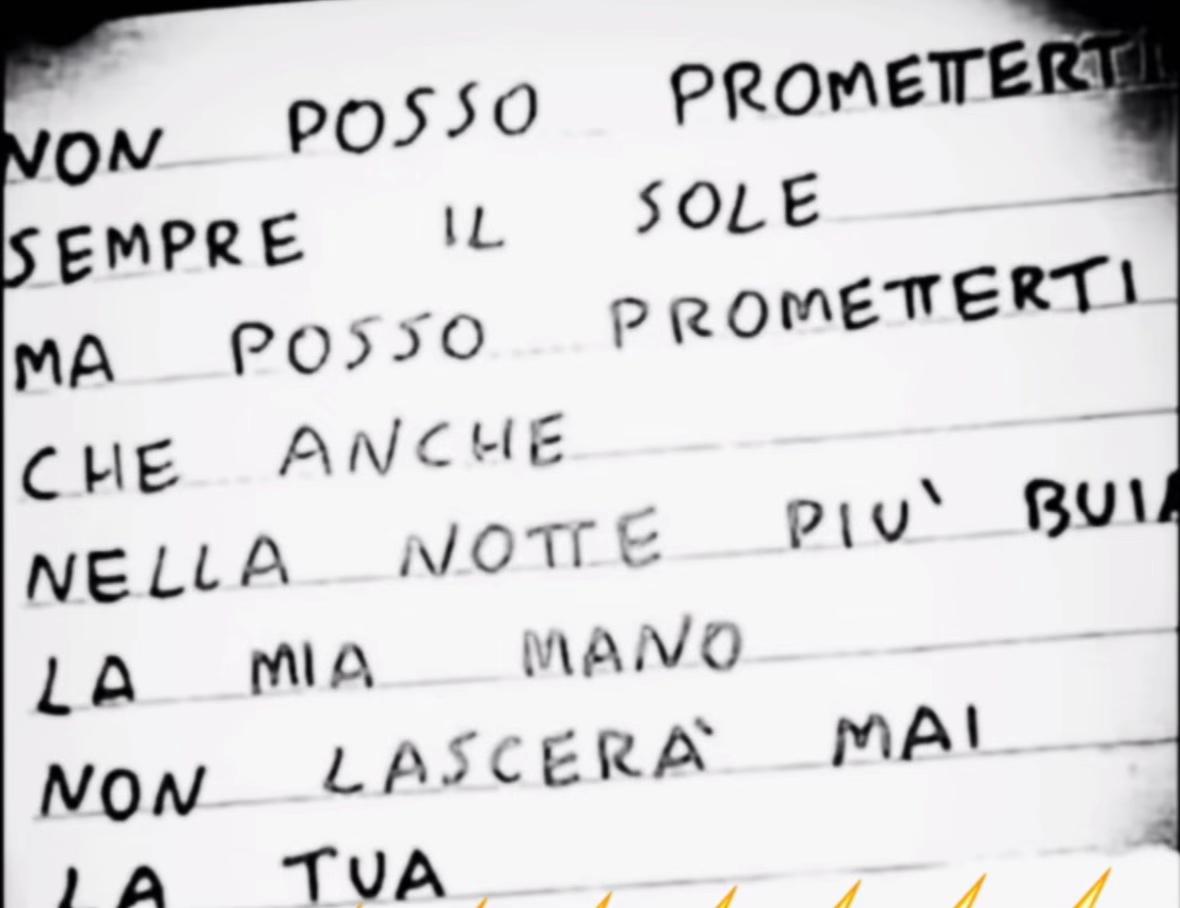 NON POSSO PROMETTERTI
SEMPRE IL SOLE
MA POSSO PROMETTERTI
CHE ANCHE
NELLA NOTTE PIU' BUIA
LA MIA MANO
NON LASCERA' MAI
LA TUA